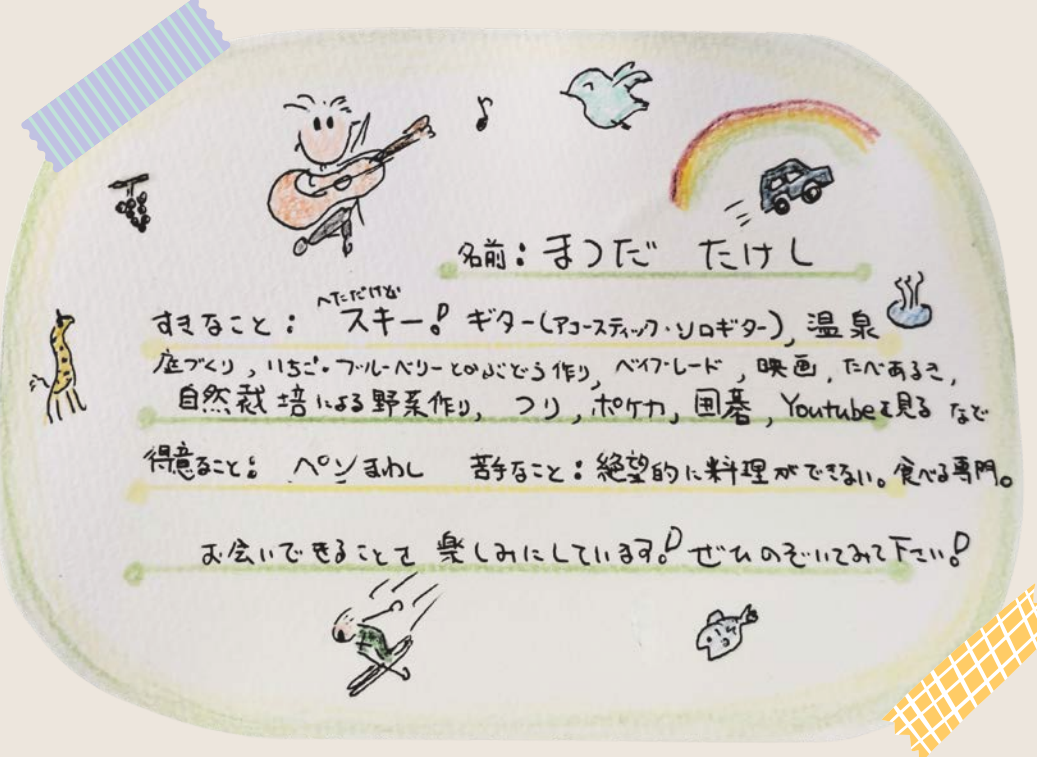 名前：まつだ たけし
へただけど
すきなこと： スキー！ ギター(アコースティック・ソロギター)，温泉
庭づくり，いちご・ブルーベリーとかぶどう作り，ベイブレード，映画，たべあるき，
自然栽培による野菜作り，つり，ポケカ，囲碁，Youtubeを見る など
得意なこと： ペンまわし 苦手なこと：絶望的に料理ができない。食べる専門。
お会いできることを楽しみにしています！ぜひのぞいてみて下さい！